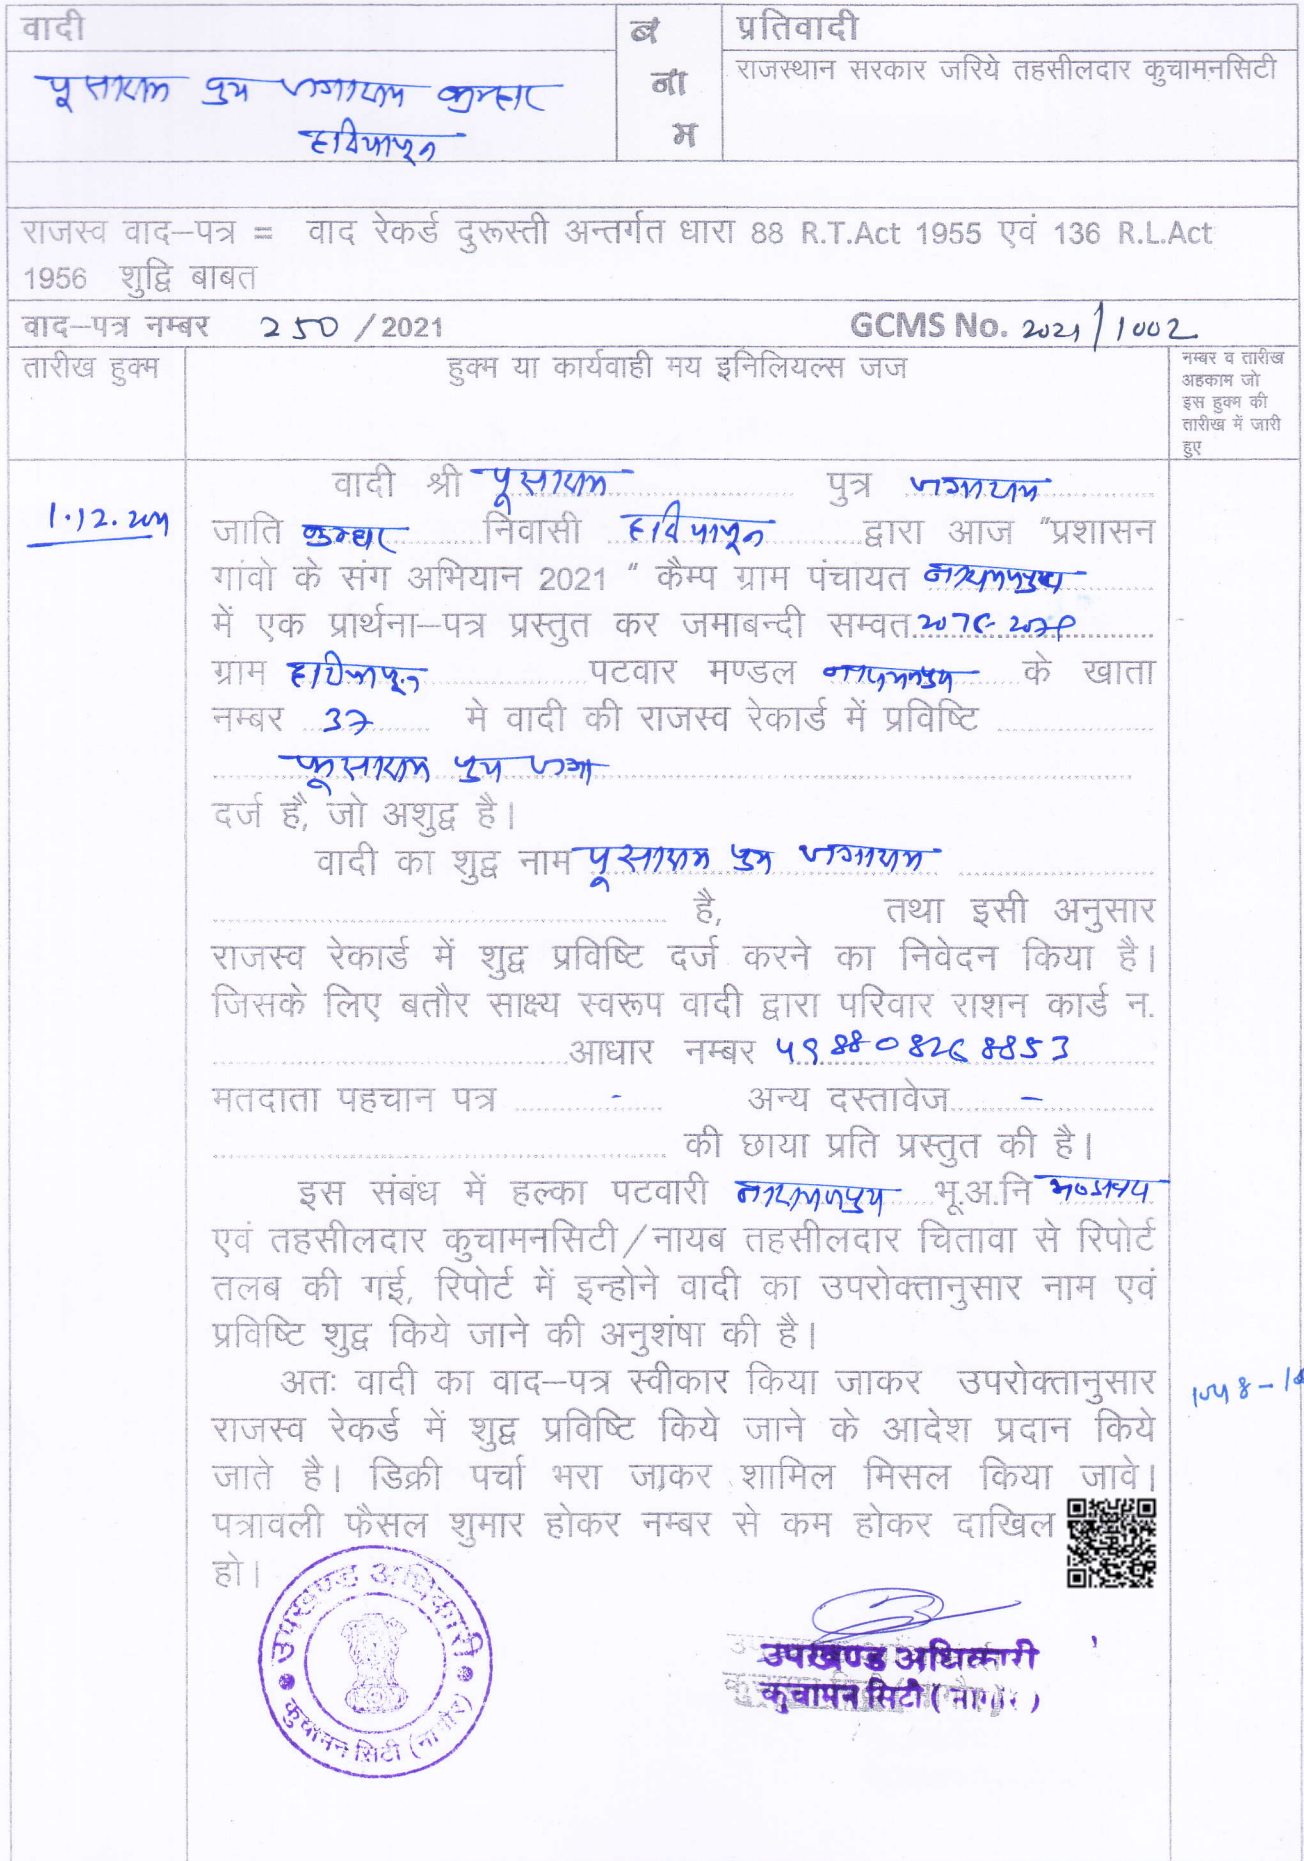 वादी
ब
ना
म
प्रतिवादी
पूसाराम पुत्र जगाराम कुम्हार
राजस्थान सरकार जरिये तहसीलदार कुचामनसिटी
राजस्व वाद–पत्र = वाद रेकर्ड दुरूस्ती अन्तर्गत धारा 88 R.T.Act 1955 एवं 136 R.L.Act
1956 शुद्वि बाबत
वाद–पत्र नम्बर 250 /2021 GCMS No. 2021/1002
तारीख हुक्म
हुक्म या कार्यवाही मय इनिलियल्स जज
नम्बर व तारीख
अहकाम जो
इस हुक्म की
तारीख में जारी
हुए
1.12.2021
वादी श्री पूसाराम पुत्र जगाराम
जाति कुम्हार निवासी द्वारा आज "प्रशासन
गांवो के संग अभियान 2021 " कैम्प ग्राम पंचायत नारायणपुरा
में एक प्रार्थना–पत्र प्रस्तुत कर जमाबन्दी सम्वत
ग्राम पटवार मण्डल नारायणपुरा के खाता
नम्बर 37 मे वादी की राजस्व रेकार्ड में प्रविष्टि
फूसाराम पुत्र जगा
दर्ज है, जो अशुद्व है।
वादी का शुद्व नाम पूसाराम पुत्र जगाराम
है, तथा इसी अनुसार
राजस्व रेकार्ड में शुद्व प्रविष्टि दर्ज करने का निवेदन किया है।
जिसके लिए बतौर साक्ष्य स्वरूप वादी द्वारा परिवार राशन कार्ड न.
आधार नम्बर
मतदाता पहचान पत्र - अन्य दस्तावेज –
की छाया प्रति प्रस्तुत की है।
इस संबंध में हल्का पटवारी नारायणपुरा भू.अ.नि
एवं तहसीलदार कुचामनसिटी/नायब तहसीलदार चितावा से रिपोर्ट
तलब की गई, रिपोर्ट में इन्होने वादी का उपरोक्तानुसार नाम एवं
प्रविष्टि शुद्व किये जाने की अनुशंषा की है।
अतः वादी का वाद–पत्र स्वीकार किया जाकर उपरोक्तानुसार
राजस्व रेकर्ड में शुद्व प्रविष्टि किये जाने के आदेश प्रदान किये
जाते है। डिक्री पर्चा भरा जाकर शामिल मिसल किया जावे।
पत्रावली फैसल शुमार होकर नम्बर से कम होकर दाखिल
हो।
उपखण्ड अधिकारी
कुचामन सिटी (नागौर)
उपखण्ड अधिकारी
कुचामन सिटी (नागौर)